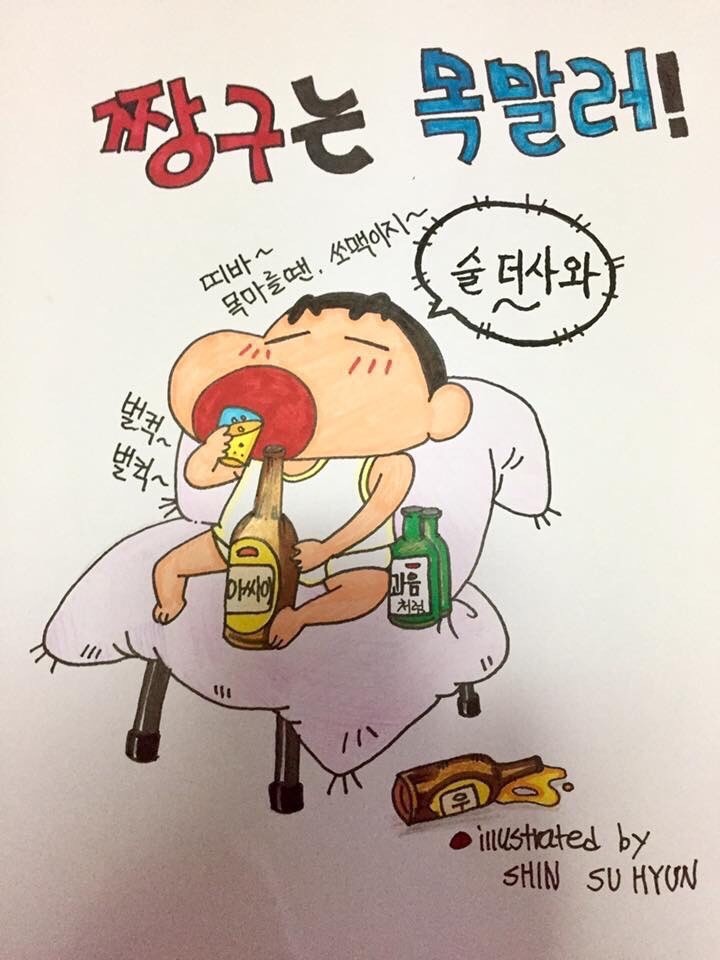 짱구는 목말러!
띠바~
목마를땐, 쏘맥이지~
술 더사와
벌컥~
벌컥~
아싸이
과음
처럼
우
illustrated by
SHIN SU HYUN